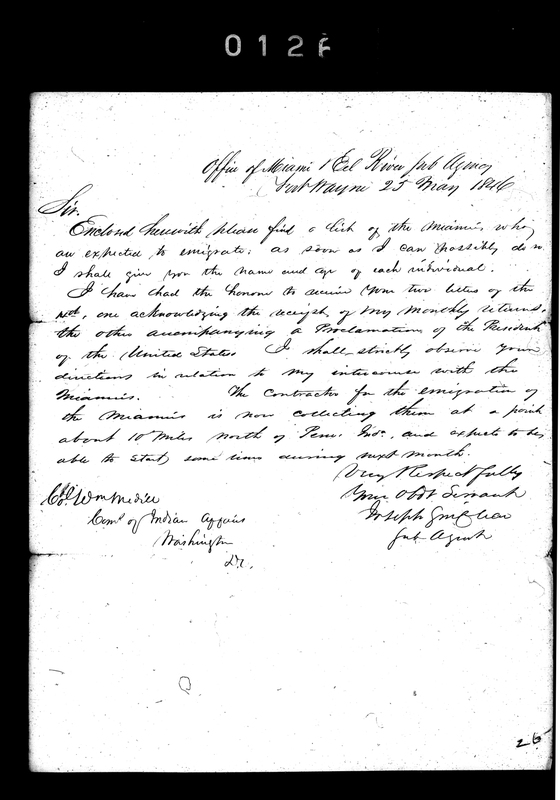 012
Office of Miami & Eel River Sub Agency
Fort Wayne 25 May 1846
Sir.
Enclosed herewith please find a list of the Miamis, who
are expected to emigrate; as soon as I can possibly do so
I shall give you the name and age of each individual.
I have had the honour to receive your two letters of the
one acknowledging the receipt of my monthly returns,
the other accompanying a Proclamation of the President
of the United States I shall strictly observe your
directions in relation to my intercourse with the
Miamis. The Contractor for the emigration of
the Miamis is now collecting them at a point
about 10 miles north of Peru Inda., and expects to be
able to start some time during next month.
Very Respectfully
Your Obdt Servant
Joseph Sinclear
Sub Agent
Col. Wm Medill
Comr of Indian Affairs
Washington
D.C.
26